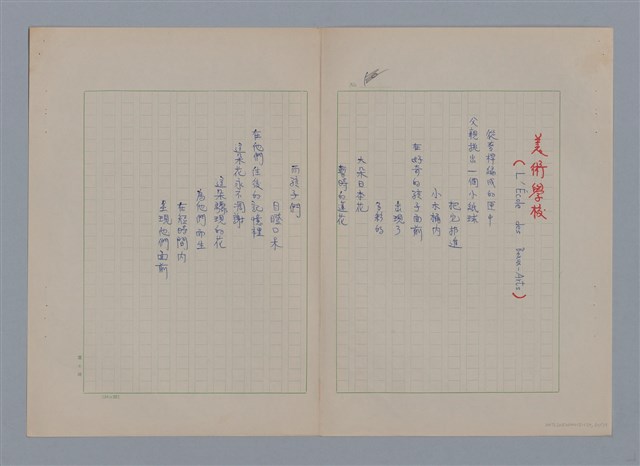 美術學校
(L'École des Beaux-Arts)
從麥稈編成的匣中
父親挑出一個小紙球
把它扔進
小木桶內
在好奇的孩子面前
出現了
多彩的
大朵日本花
暫時的蓮花
而孩子們
目瞪口呆
在他們往後的記憶裡
這朵花永不凋謝
這朵驟現的花
為他們而生
在短時間內
呈現他們面前